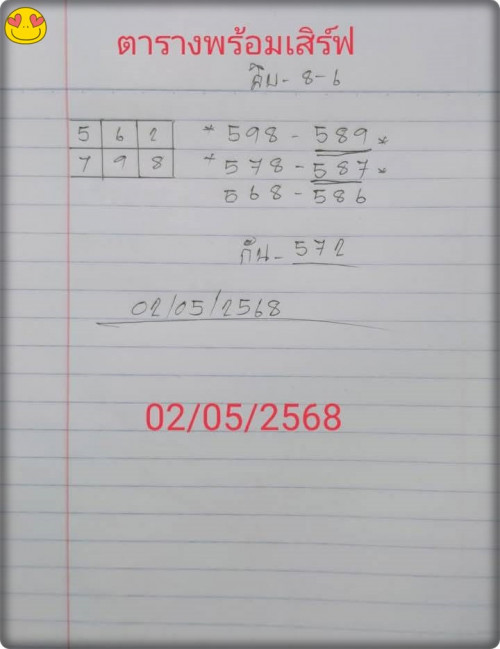 ตารางพร้อมเสิร์ฟ
ดับ - 8-6
5 6 2 * 598 - 589 *
7 9 8 * 578 - 587 *
568 - 586
กัน - 572
02/05/2568
02/05/2568